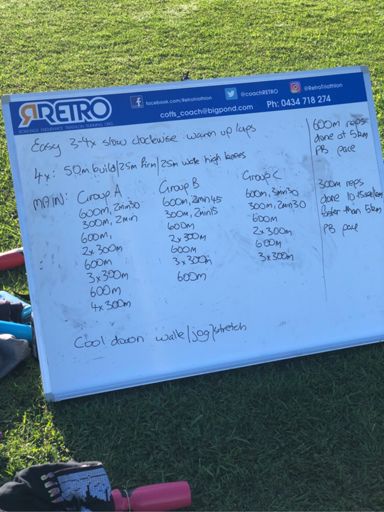 RETRO
facebook.com/Retrotriathlon
@coachRETRO
@RetroTriathlon
coffs_coach@bigpond.com
Ph: 0434 718 274
Easy 3-4x slow clockwise warm up laps
4x: 50m build/25m firm/25m walk high knees
MAIN:
Group A
600m, 2min30
300m, 2min
600m,
2x300m
600m
3x300m
600m
4x300m
Group B
600m, 2min45
300m, 2min15
600m
2x300m
600m
3x300m
600m
Group C
600m, 3min30
300m, 2min30
600m
2x300m
600m
3x300m
600m reps
done at 5km
PB pace
300m reps
done
faster than 5km
PB pace
Cool down walk/jog/stretch